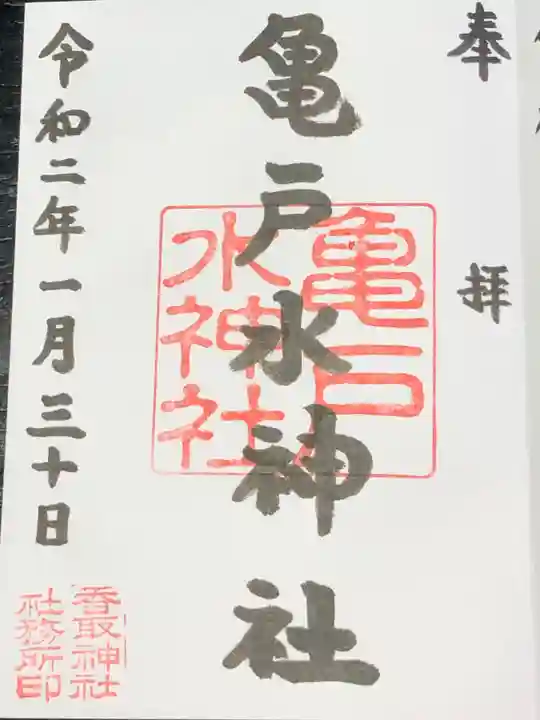 奉拝
亀戸水神社
令和二年一月三十日
亀戸
水神社
香取神社
社務所印